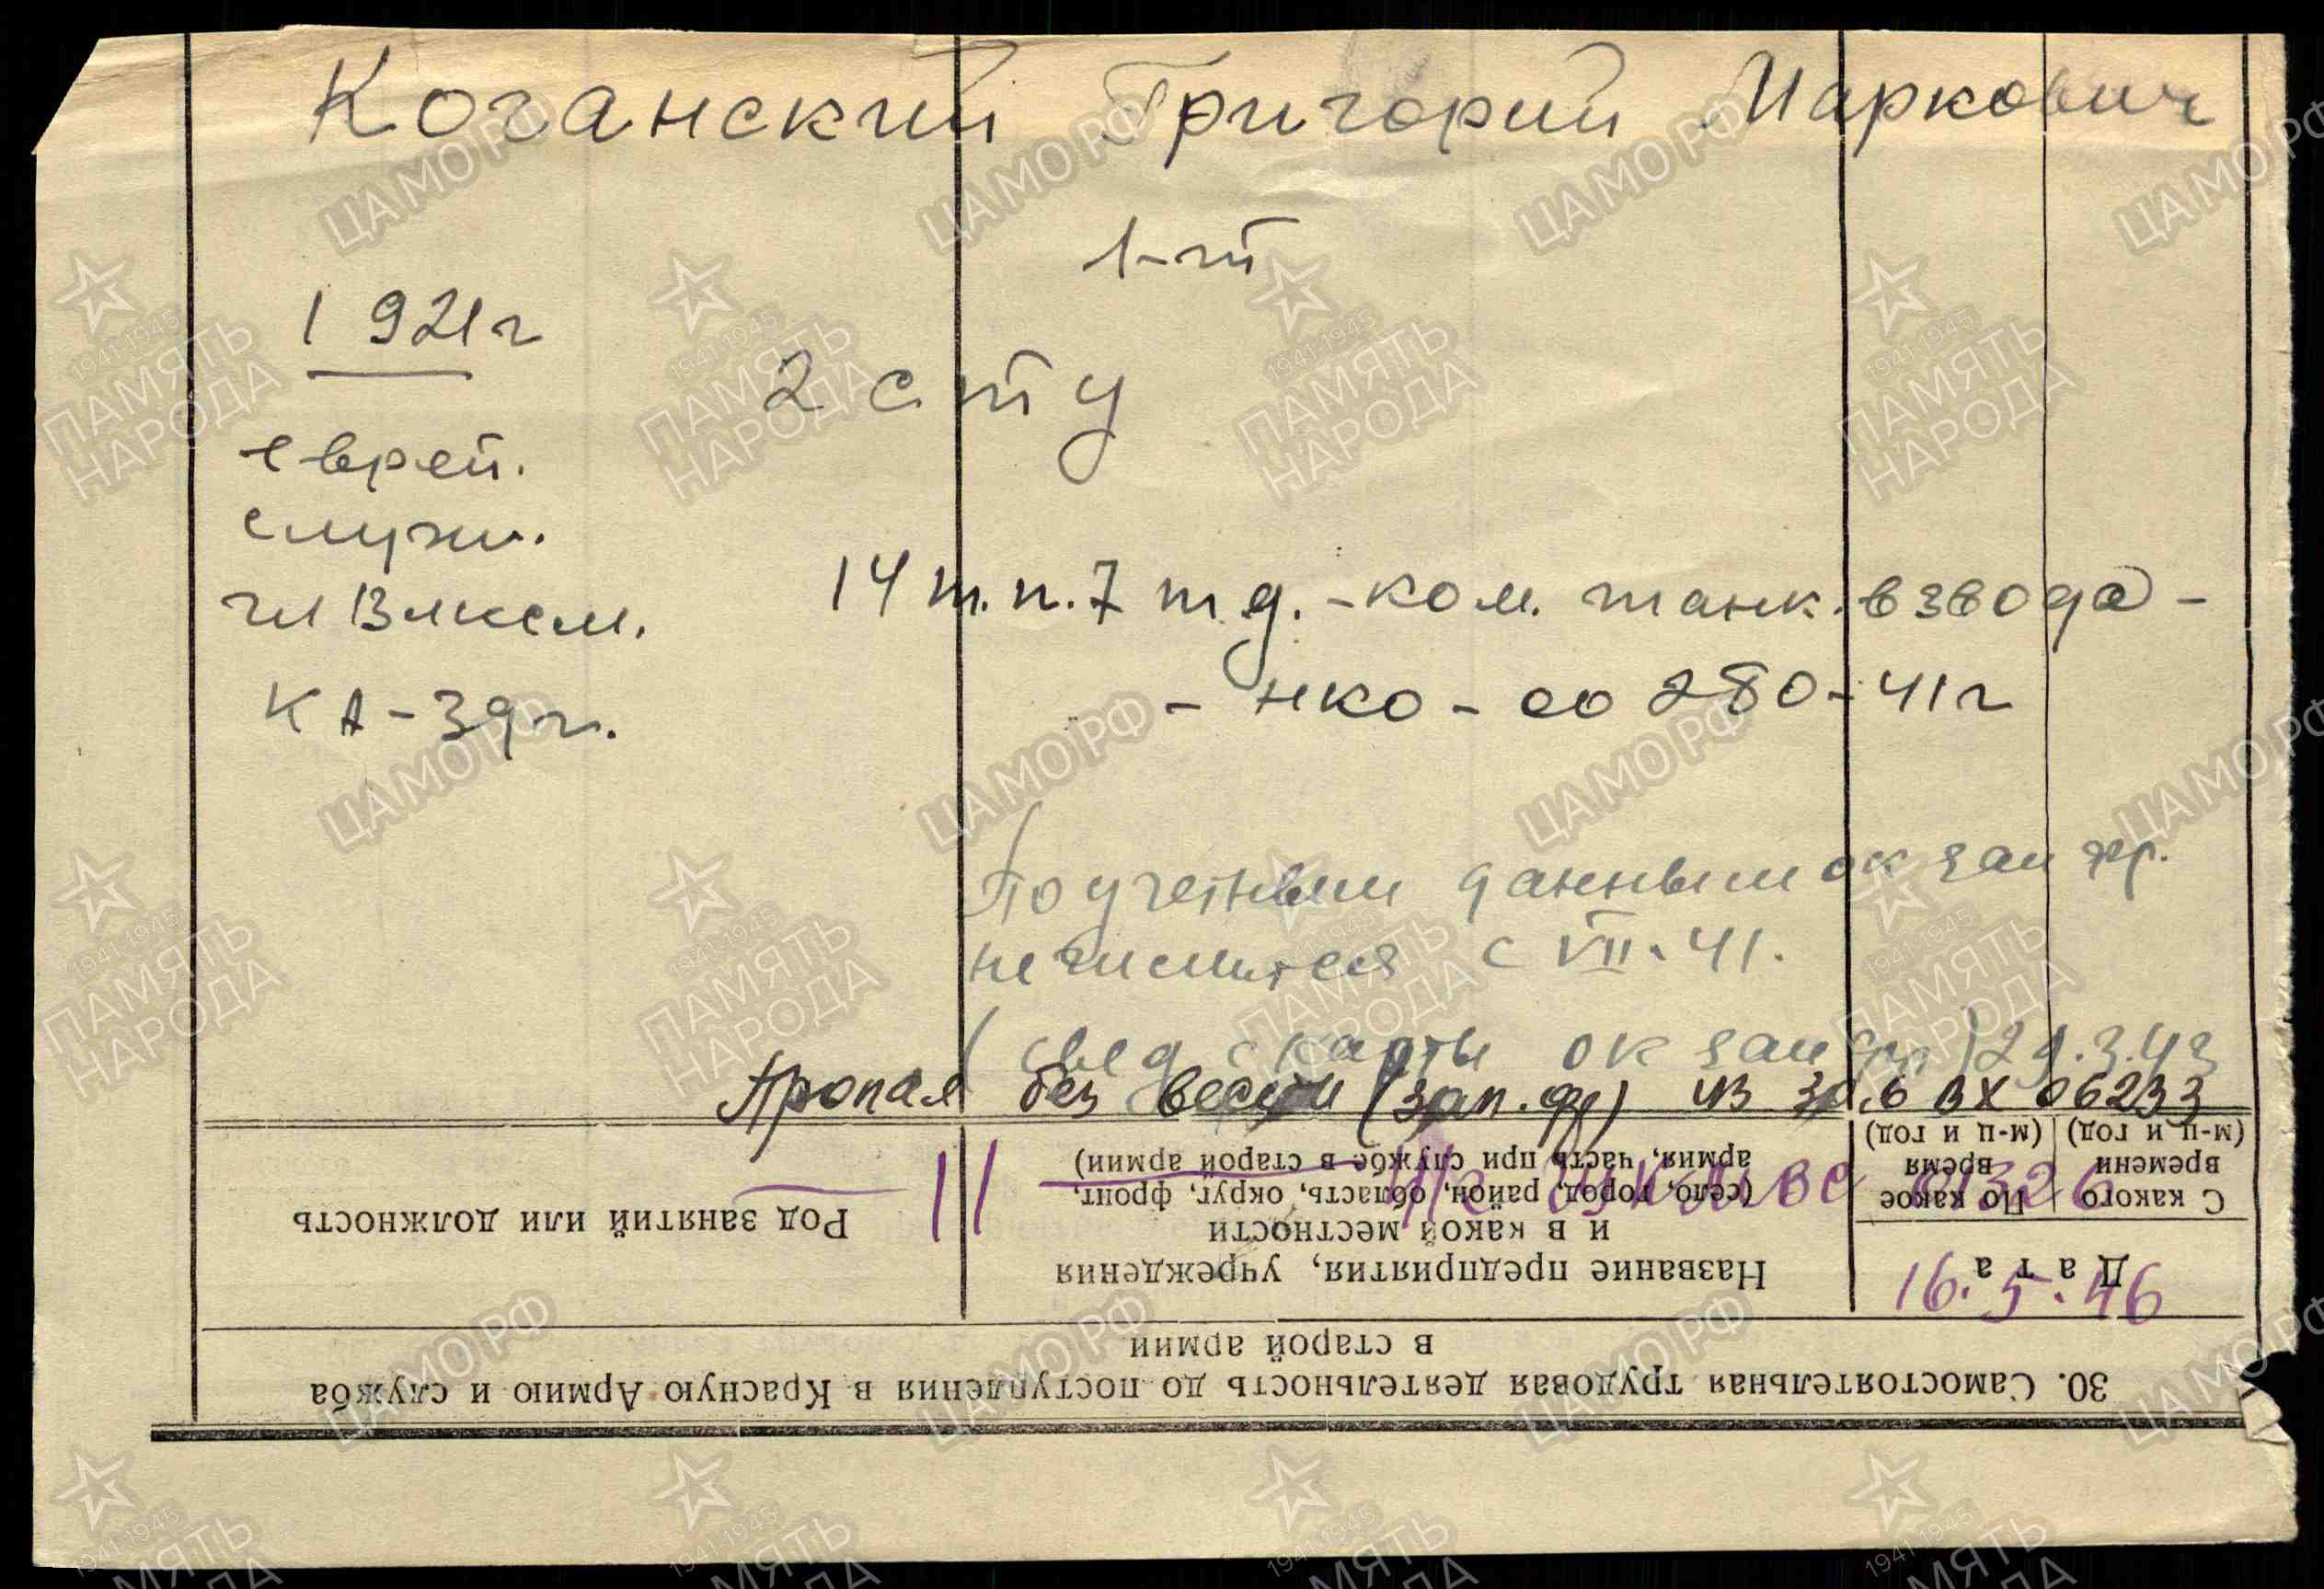 Коганский Григорий Маркович
л-т
1921г
2 сту
еврей.
служ.
чл Влксм.
14 т.п. 7 тд. - ком. танк. взвода -
КА - 39 г.
- нко - 00280 - 41г
По учетным данным ок зап фр.
не числится с VII. 41.
(свед с карты ок зап фр) 29.3.43
Пропал без вести (зап. фр) вх 06233
11 01326
16.5.46
30. Самостоятельная трудовая деятельность до поступления в Красную Армию и служба
в старой армии
Дата
С какого времени (м-ц и год)
По какое время (м-ц и год)
Название предприятия, учреждения
и в какой местности
(село, город, район, область, округ, фронт,
армия, часть при службе в старой армии)
Род занятий или должность
ЦАМО РФ
1941-1945
ПАМЯТЬ
НАРОДА